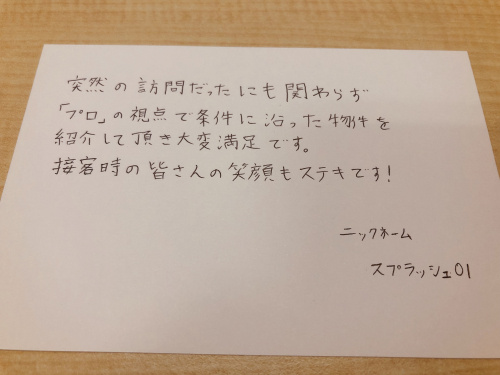 突然の訪問だったにも関わらず
「プロ」の視点で条件に沿った物件を
紹介して頂き大変満足です。
接客時の皆さんの笑顔もステキです!
ニックネーム
スプラッシュ01